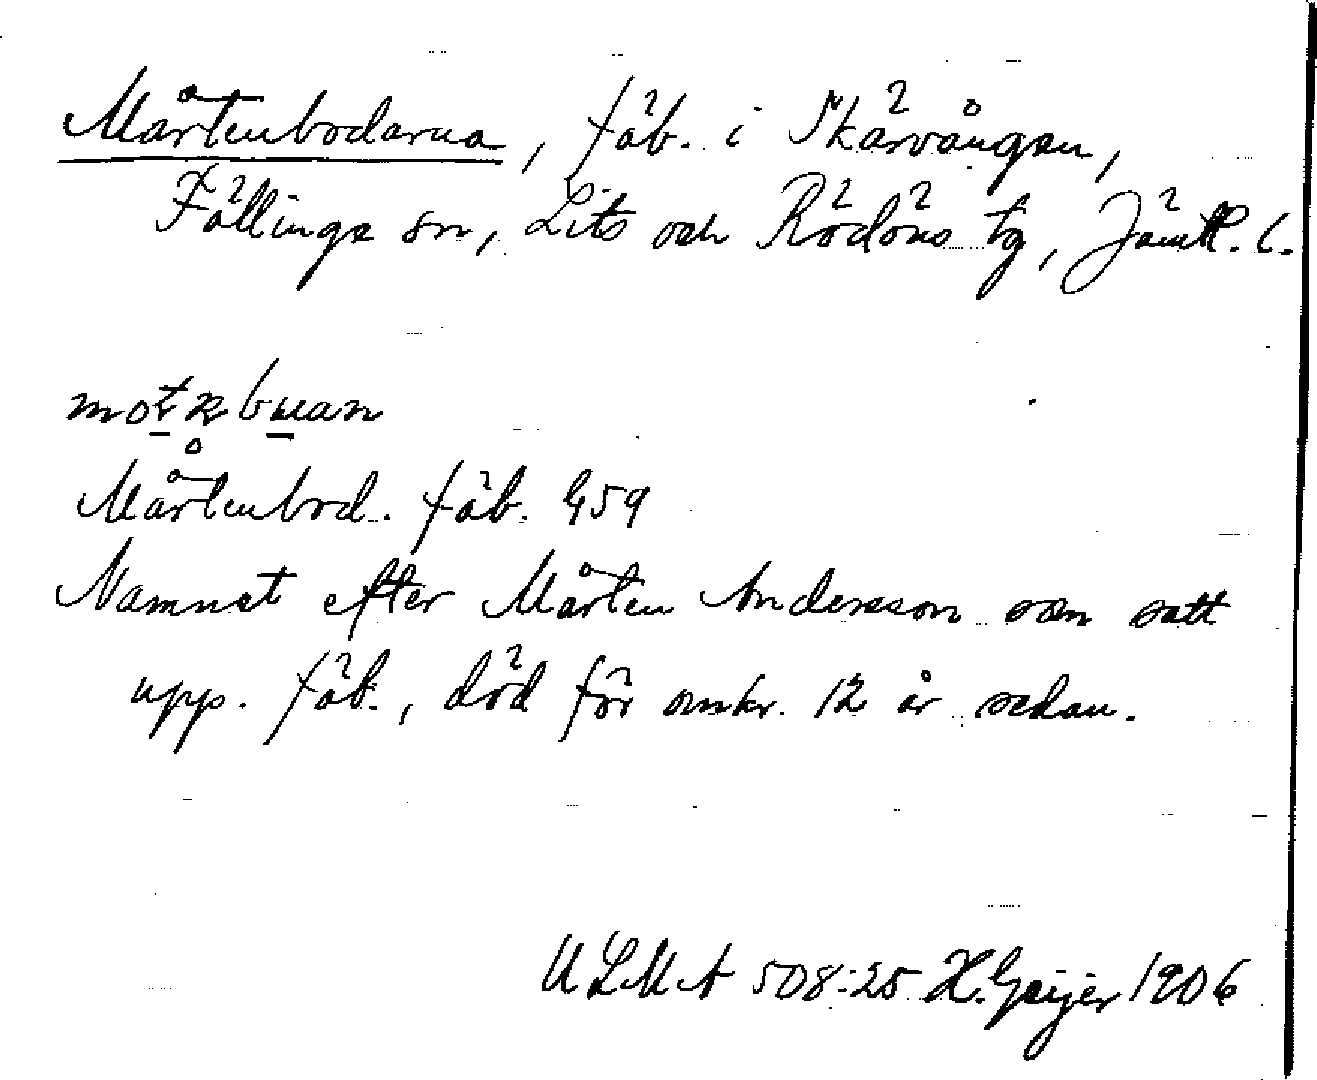 Mårtenbodarna, fäb. i Skärvången,
Föllinge sn, Lits och Rödöns tg, Jämtl. l.
Mårtenbod. fäb. G59
Namnet efter Mårten Andersson som satt
upp. fäb., död för omkr. 12 år sedan.
ULMA 508:25 H. Geijer 1906